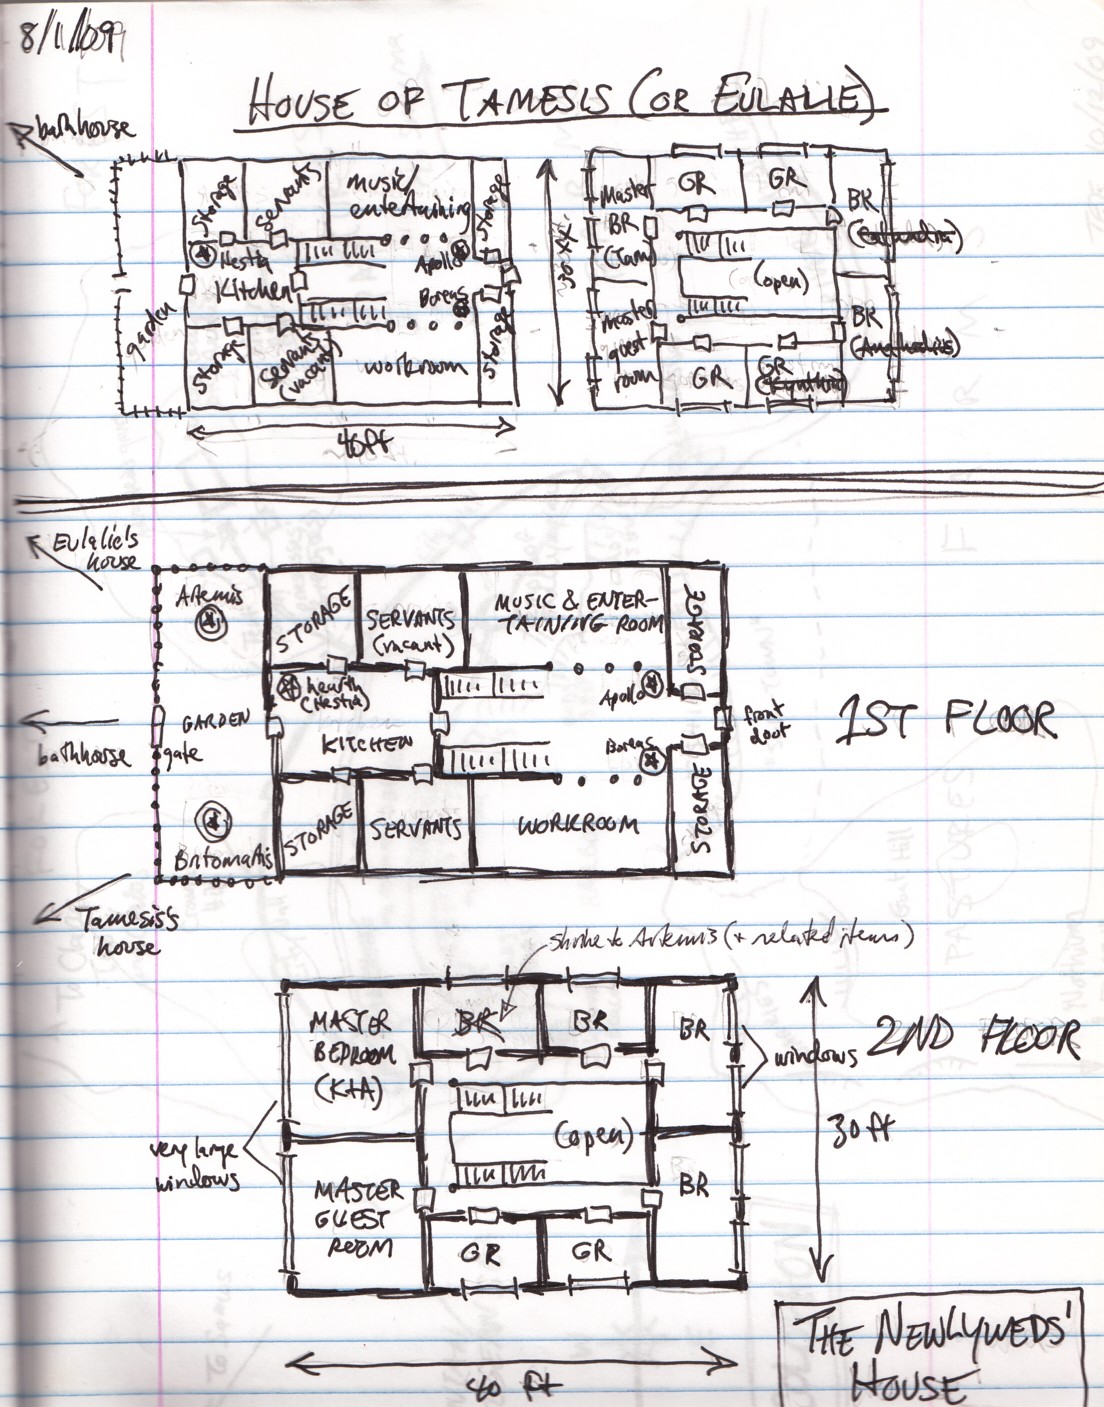 8/1/09
HOUSE OF TAMESIS (OR EULALIE)
bathhouse
Storage
Servants
music/
entertaining
Storage
Hestia
Apollo
Kitchen
Boreas
garden
Storage
Servants
(vacant)
workroom
Storage
40ft
Master
BR
(Tam)
GR
GR
BR
(open)
master
guest
room
GR
GR
BR
Eulalie's
house
Artemis
STORAGE
SERVANTS
(vacant)
MUSIC & ENTER-
TAINING ROOM
STORAGE
hearth
(Hestia)
Apollo
GARDEN
KITCHEN
front
door
1ST FLOOR
bathhouse
gate
Boreas
STORAGE
SERVANTS
WORKROOM
STORAGE
Britomartis
Tamesis's
house
shrine to Artemis (+ related items)
MASTER
BEDROOM
(K+A)
BR
BR
BR
windows
2ND FLOOR
(open)
30 ft
very large
windows
MASTER
GUEST
ROOM
BR
GR
GR
40 ft
THE NEWLYWEDS'
HOUSE